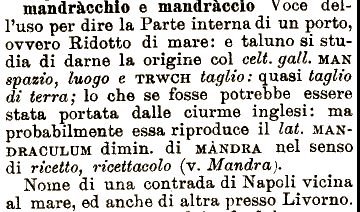 mandràcchio e mandràccio Voce del-
l'uso per dire la Parte interna di un porto,
ovvero Ridotto di mare: e taluno si stu-
dia di darne la origine col celt. gall. MAN
spazio, luogo e TRWCH taglio: quasi taglio
di terra; lo che se fosse potrebbe essere
stata portata dalle ciurme inglesi: ma
probabilmente essa riproduce il lat. MAN-
DRACULUM dimin. di MÀNDRA nel senso
di ricetto, ricettacolo (v. Mandra).
Nome di una contrada di Napoli vicina
al mare, ed anche di altra presso Livorno.